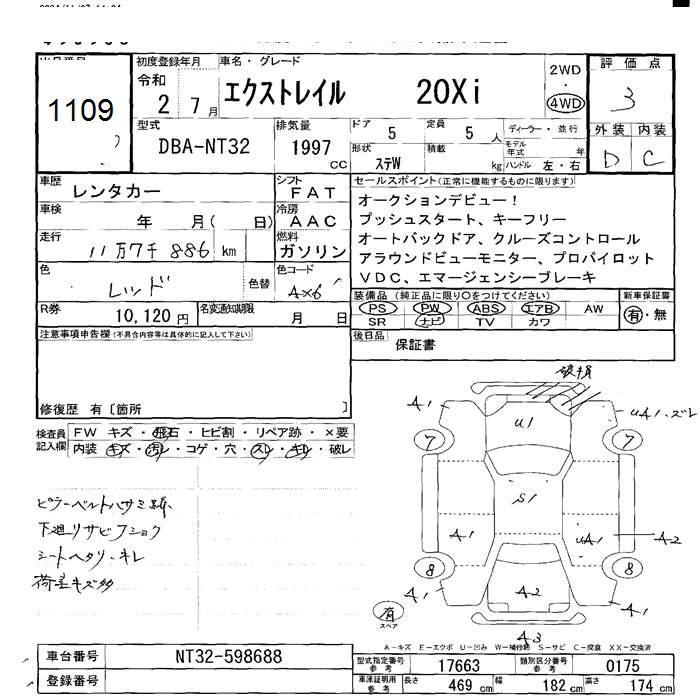 1109
初度登録年月
令和
2 7月
車名・グレード
エクストレイル 20Xi
2WD
・
4WD
評価点
3
外装 内装
D C
型式
DBA-NT32
排気量
1997 CC
ドア 5
定員 5 人
ディーラー・並行
形状 ステW
積載 kg
モデル年式 年
ハンドル 左・右
車歴
レンタカー
シフト
FAT
車検
年 月( 日)
冷房
AAC
走行
11万7千886 km
燃料
ガソリン
色
レッド
色替
色コード
AX6
R券
10,120円
名変通知期限
月 日
セールスポイント(正常に機能するものに限ります)
オークションデビュー!
プッシュスタート、キーフリー
オートバックドア、クルーズコントロール
アラウンドビューモニター、プロパイロット
VDC、エマージェンシーブレーキ
装備品(純正品に限り○をつけてください)
PS PW ABS エアB AW
SR ナビ TV カワ
新車保証書
有・無
後日品
保証書
注意事項申告欄(不具合内容等は具体的に記入して下さい)
修復歴 有〔箇所 〕
検査員記入欄
FW キズ・飛石・ヒビ割・リペア跡・×要
内装 キズ・汚レ・コゲ・穴・スレ・キレ・破レ
ピラーベルトハサミ跡、
下廻リサビフショク
シートヘタリ・キレ
荷室キズ多
破損
A1
U1
UA1.ズレ
7
7
S1
A1
UA1
A2
8
8
A1
A2
A1
A3
有
スペア
A-キズ E-エクボ U-凹み W-補修跡 S-サビ C-腐食 XX-交換済
車台番号
NT32-598688
登録番号
型式指定番号 参考
17663
類別区分番号 参考
0175
車庫証明用 参考
長さ 469 cm 幅 182 cm 高さ 174 cm